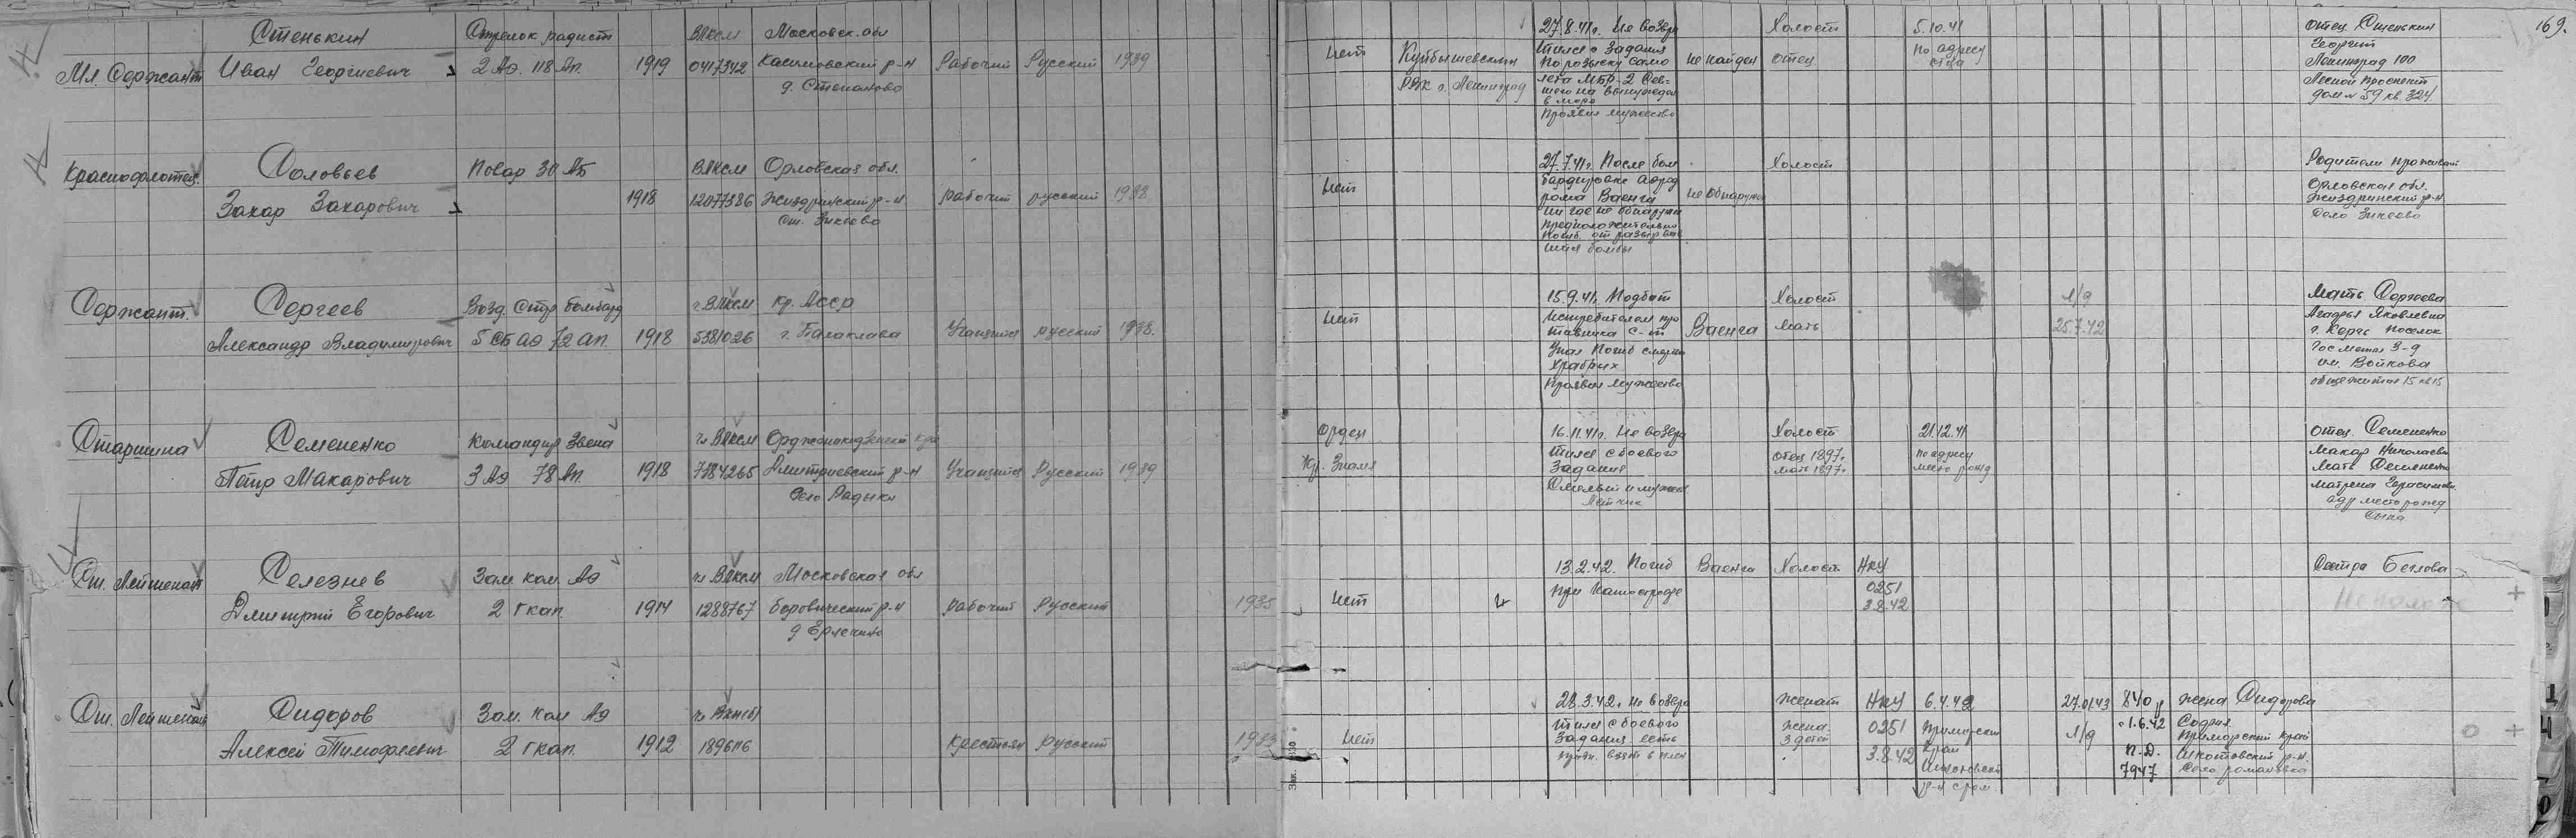 169.
Мл. Сержант
Стенькин
Иван Георгиевич
Стрелок радист
2 Аэ. 118 Ап.
1919
ВЛКСМ
0417342
Московск. обл
Касимовский р-н
д. Степаново
Рабочий
Русский
1939
нет
Куйбышевским
РВК г. Ленинград
27.8.41г. Не возвра
тился с задания
по розыску само
лета МБР-2 Сев-
шего на вынужден
в море
Проявил мужество
не найден
Холост
отец
5.10.41
По адресу
отца
отец Стенькин
Георгий
Ленинград 100
Лесной проспект
дом № 59 кв. 324
Краснофлотец
Соловьев
Захар Захарович
Повар 30 АБ
1918
ВЛКСМ
12077386
Орловская обл.
Жиздринский р-н
ст. Зикеево
рабочий
русский
1938
нет
27.7.41г. После бом
бардировки аэрод
рома Ваенга
нигде не обнаружен
предположительно
погиб от разорвав
шейся бомбы
не обнаружен
Холост
Родители проживают
Орловская обл.
Жиздринский р-н
Село Зикеево
Сержант.
Сергеев
Александр Владимирович
Возд. Стр. бомбард
5 СБ аэ 72 ап.
1918
чл. ВЛКСМ
5381026
Кр. Асср
г. Балаклава
Учащийся
русский
1938.
нет
15.9.41. Подбит
Истребителем про
тивника
Погиб смертью
Храбрых
Проявил мужество
Ваенга
Холост
мать
л/д
25.7.42
Мать Сергеева
Агафья Яковлевна
г. Керчь поселок
Госметал З-д
им. Войкова
общежитие 15 кв 15
Старшина
Семененко
Петр Макарович
Командир Звена
3 Аэ 78 Ап.
1918
чл ВЛКСМ
7184265
Орджоникидзевский край
Дмитриевский р-н
Село Радыки
Учащийся
Русский
1939
Орден
Кр. Знамя
16.11.41г. Не возвра
тился с боевого
Задания
Смелый и мужест
Летчик
Холост
отец 1897г.
мать 1897г.
21.12.41
по адресу
место рожд
отец. Семененко
Макар Николаевич
Мать Семененко
Матрена Герасимовн.
адр место рожд
сына
Ст. Лейтенант
Селезнев
Дмитрий Егорович
Зам. ком. Аэ
2 гкап.
1914
чл ВЛКСМ
1288767
Московская обл
боровический р-н
рабочий
Русский
1935
нет
13.2.42. Погиб
при Катастрофе
Ваенга
Холост
НКУ
0251
3.8.42
Сестра Беглова
Ст. Лейтенант
Сидоров
Алексей Тимофеевич
Зам. ком Аэ
2 гкап.
1912
чл ВКП(б)
1896116
Крестьян
Русский
1933
нет
28.3.42. Не возвра
тился с боевого
Задания есть
предп. взят в плен
женат
жена
3 детей
НКУ
0251
3.8.42
6.4.42
Приморский
Край
Шкотовский
р-н с ром
27.01.43
л/д
840 р
с 1.6.42
П.Д.
7947
жена Сидорова
София
Приморский край
Шкотовский р-н.
Село романовка